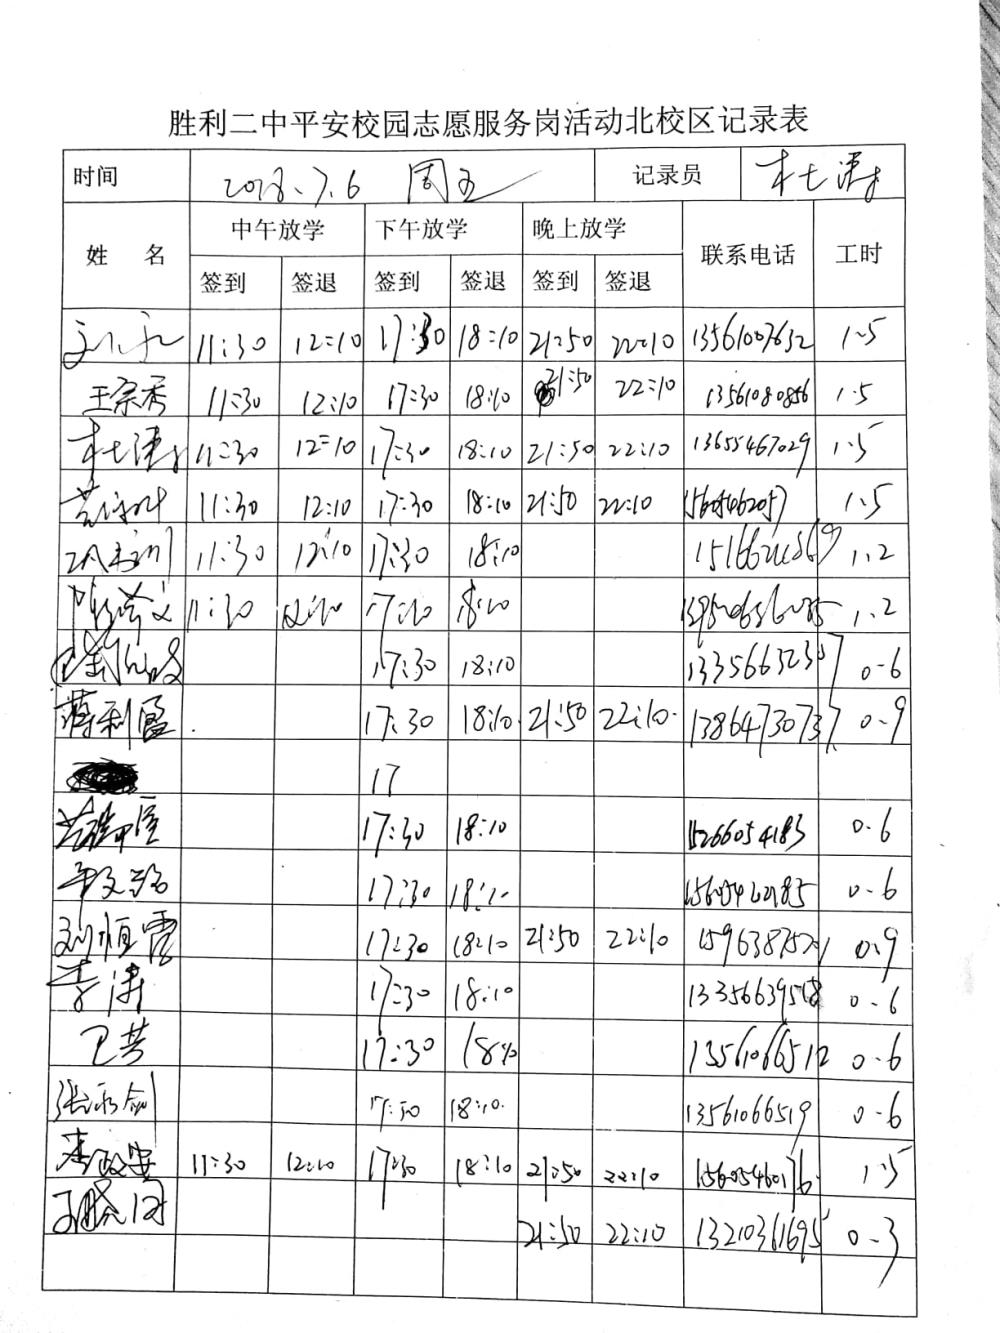 胜利二中平安校园志愿服务岗活动北校区记录表
时间 2018.7.6 周五 记录员 杜涛
姓 名 中午放学 下午放学 晚上放学 联系电话 工时
签到 签退 签到 签退 签到 签退
11:30 12:10 17:30 18:10 21:50 22:10 13561007632 1.5
王宗秀 11:30 12:10 17:30 18:10 21:50 22:10 13561080856 1.5
11:30 12:10 17:30 18:10 21:50 22:10 13655467029 1.5
11:30 12:10 17:30 18:10 21:50 22:10 15605462057 1.5
11:30 12:10 17:30 18:10 1.2
11:30 12:10 17:30 18:10 1.2
17:30 18:10 13356632307 0.6
蒋利霞 17:30 18:10 21:50 22:10 13864730737 0.9
17
17:30 18:10 15266054183 0.6
17:30 18:10 0.6
刘恒霞 17:30 18:10 21:50 22:10 0.9
李涛 17:30 18:10 13356639508 0.6
卫芳 17:30 18:10 13561066512 0.6
张永剑 17:30 18:10 13561066519 0.6
李政安 11:30 12:10 17:30 18:10 21:50 22:10 15605460176 1.5
21:50 22:10 13210361695 0.3